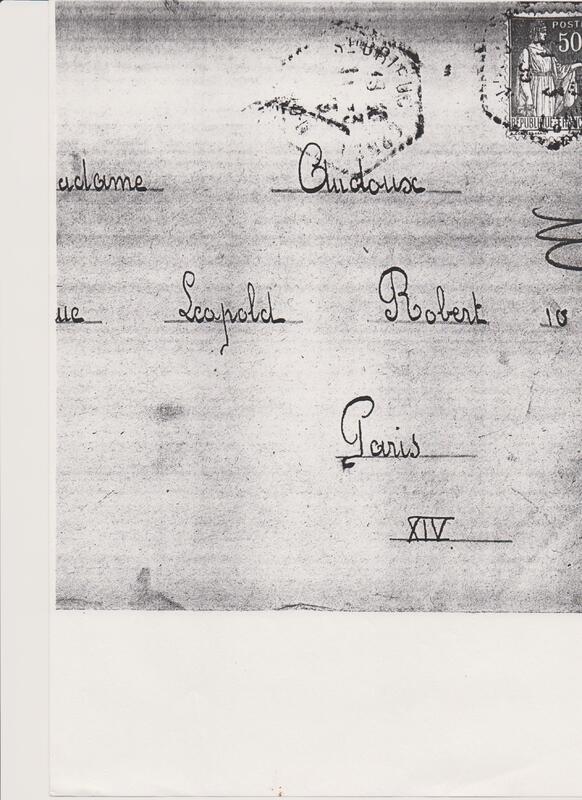 POST
50
RÉPUBLIQUE FRANC
adame Audoux
ue Leopold Robert 10
Paris
XIV